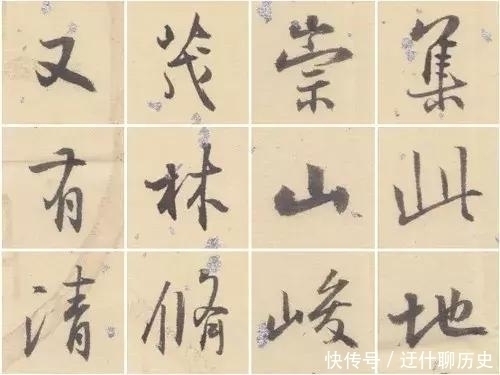 集此地
崇山峻
茂林脩
又有清
快传号 / 迂什聊历史